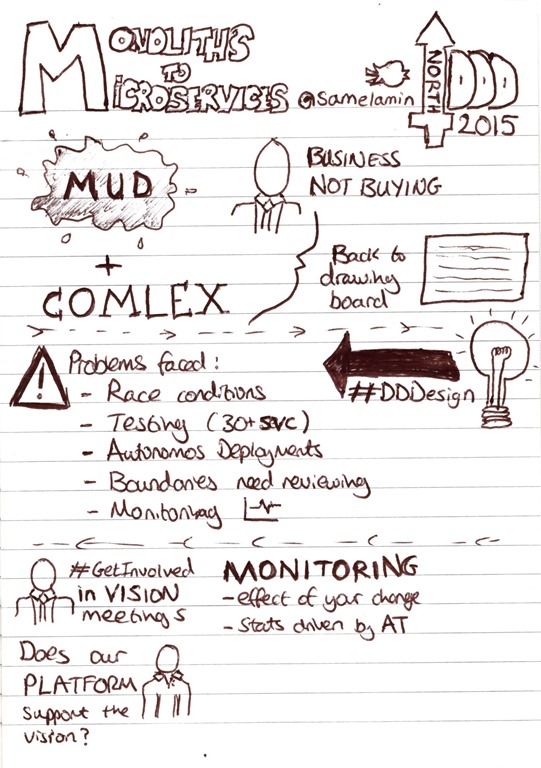 MONOLITHS
TO
MICROSERVICES
@Samelamin
NORTH
DDD
2015
MUD
+
COMLEX
BUSINESS
NOT BUYING
Back to
drawing
board
#DDDesign
Problems faced:
- Race conditions
- Testing (30+ svc)
- Autonomos Deployments
- Boundaries need reviewing
- Monitoring
#GetInvolved
in VISION
meetings
MONITORING
- effect of your change
- Stats driven by AT
Does our
PLATFORM
Support the
vision?